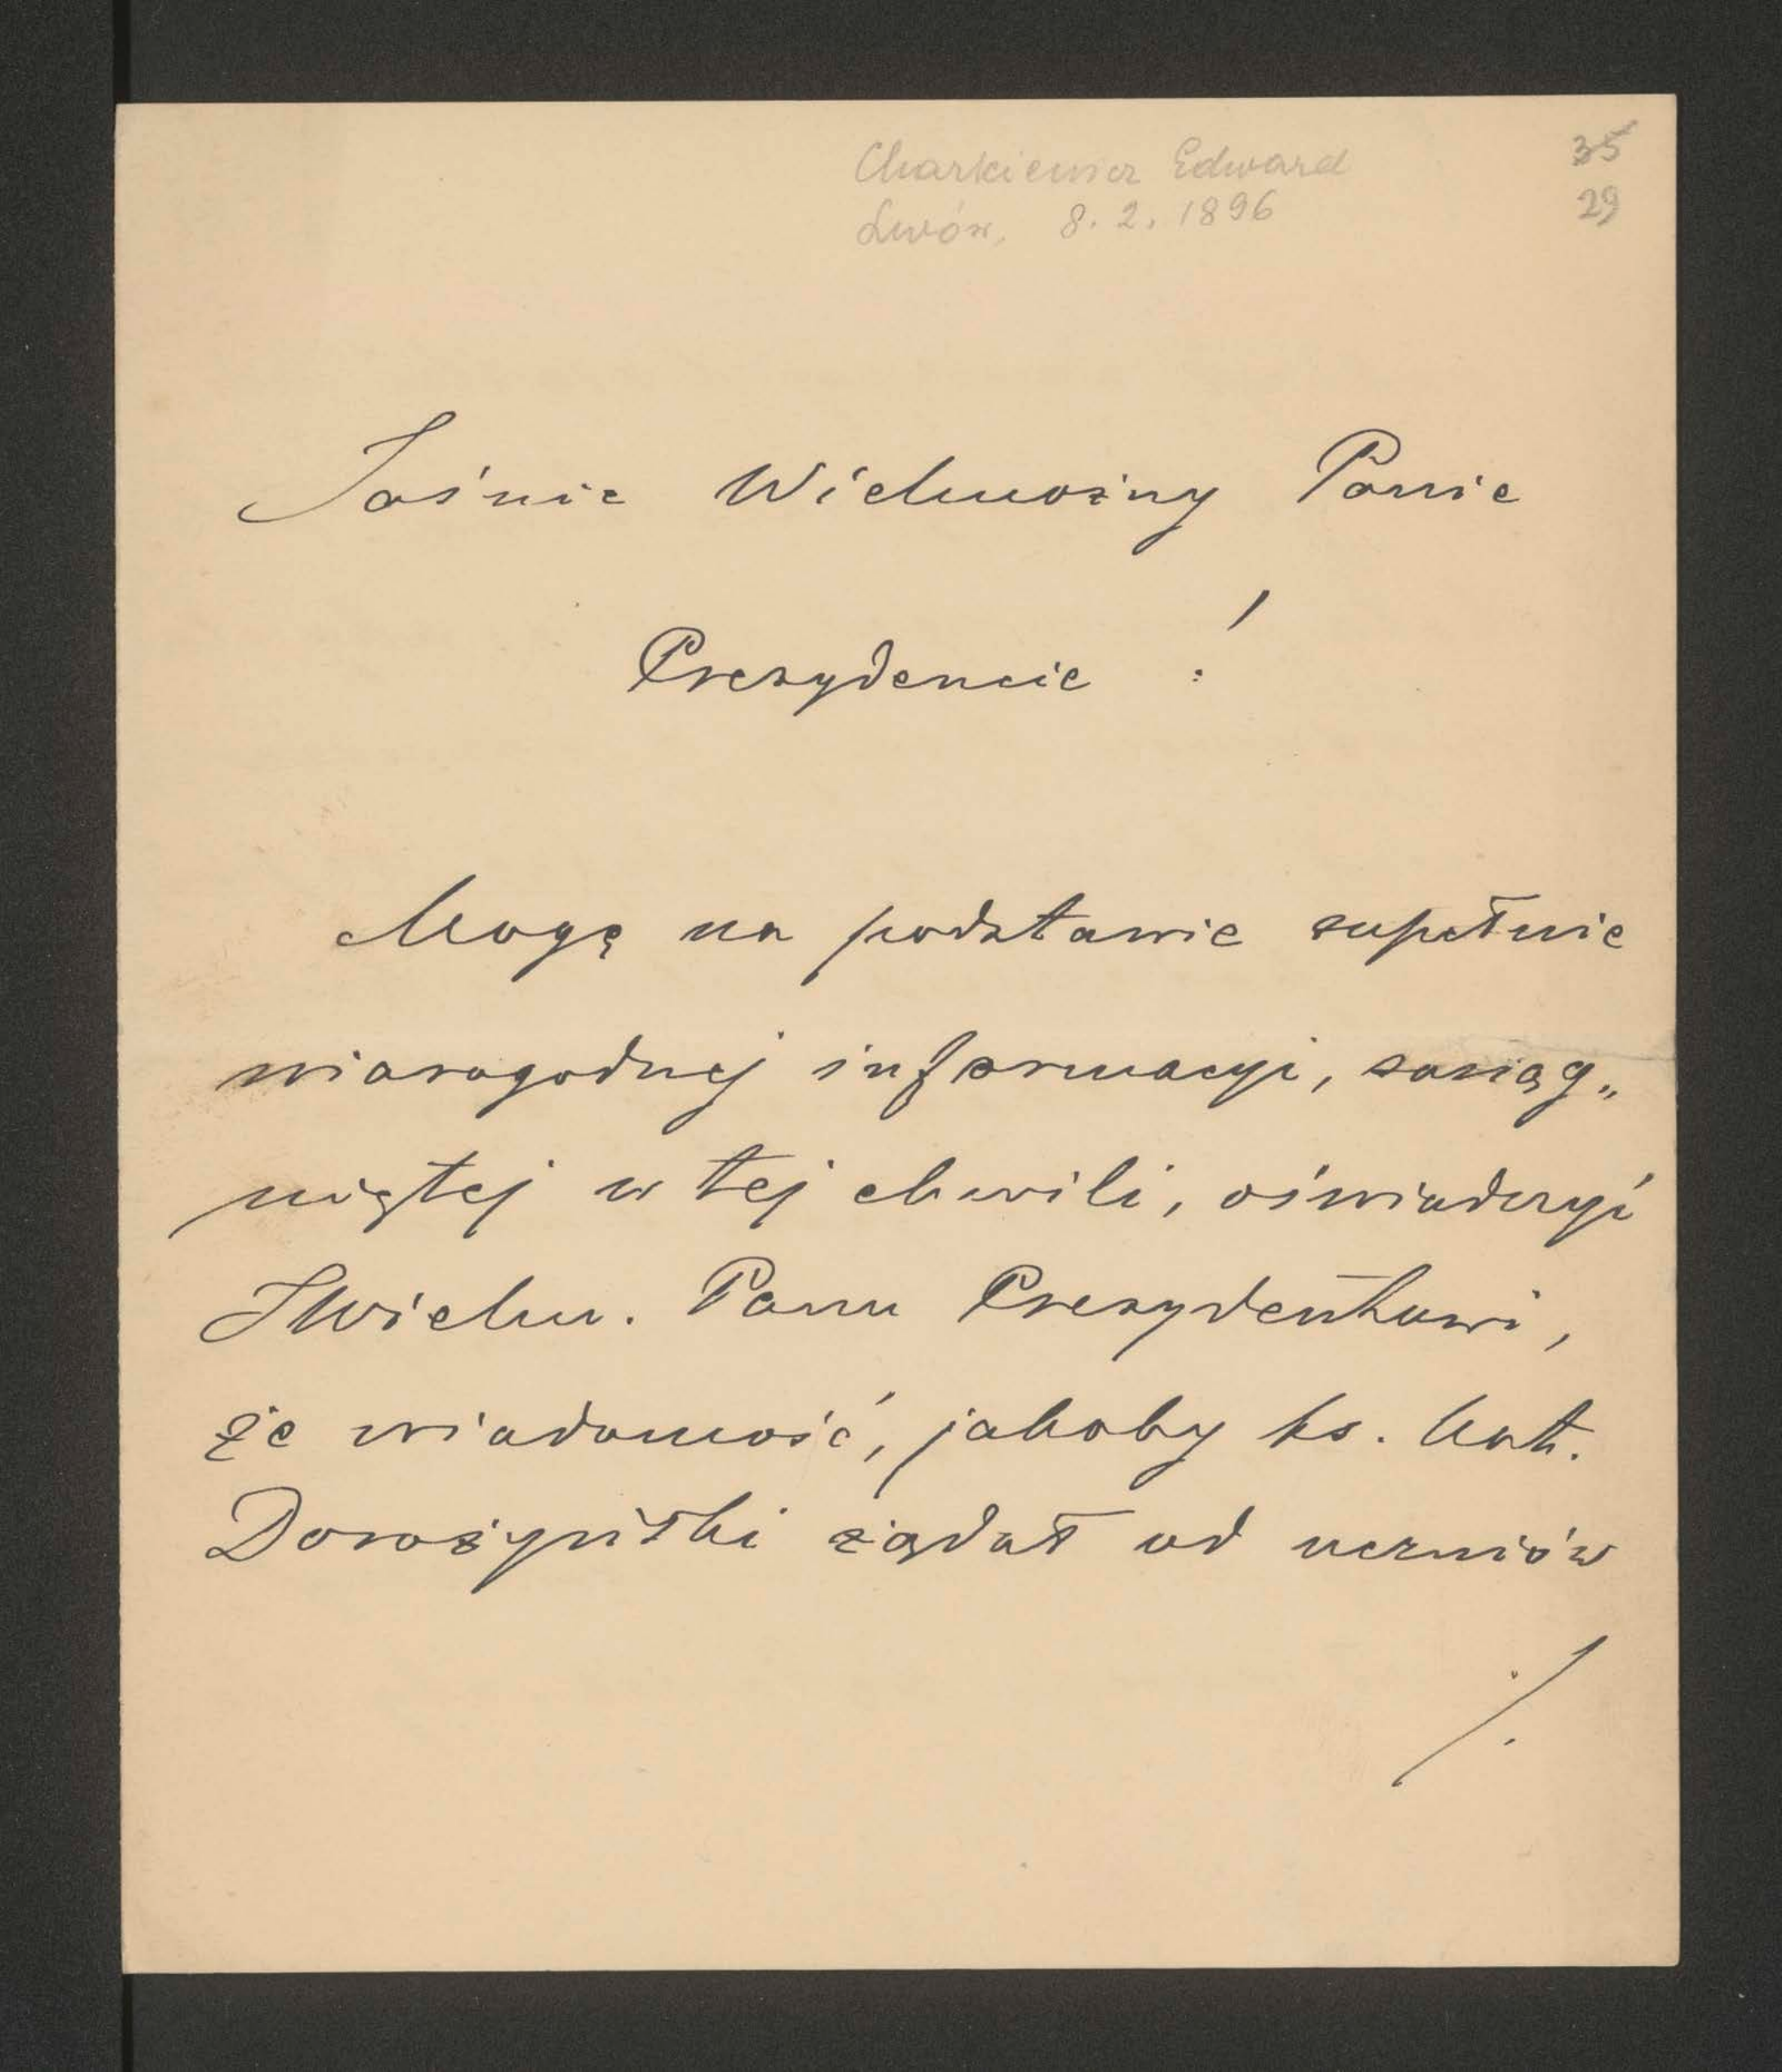 Charkiewicz Edward 35
Lwów, 8. 2. 1896 29
Jaśnie Wielmożny Panie
Prezydencie !
Mogę na podstawie zupełnie
wiarogodnej informacyi, zasiąg„
niętej w tej chwili, oświadczyć
JWielm. Panu Prezydentowi,
że wiadomość, jakoby ks. kat.
Dorożyński żądał od uczniów
./.